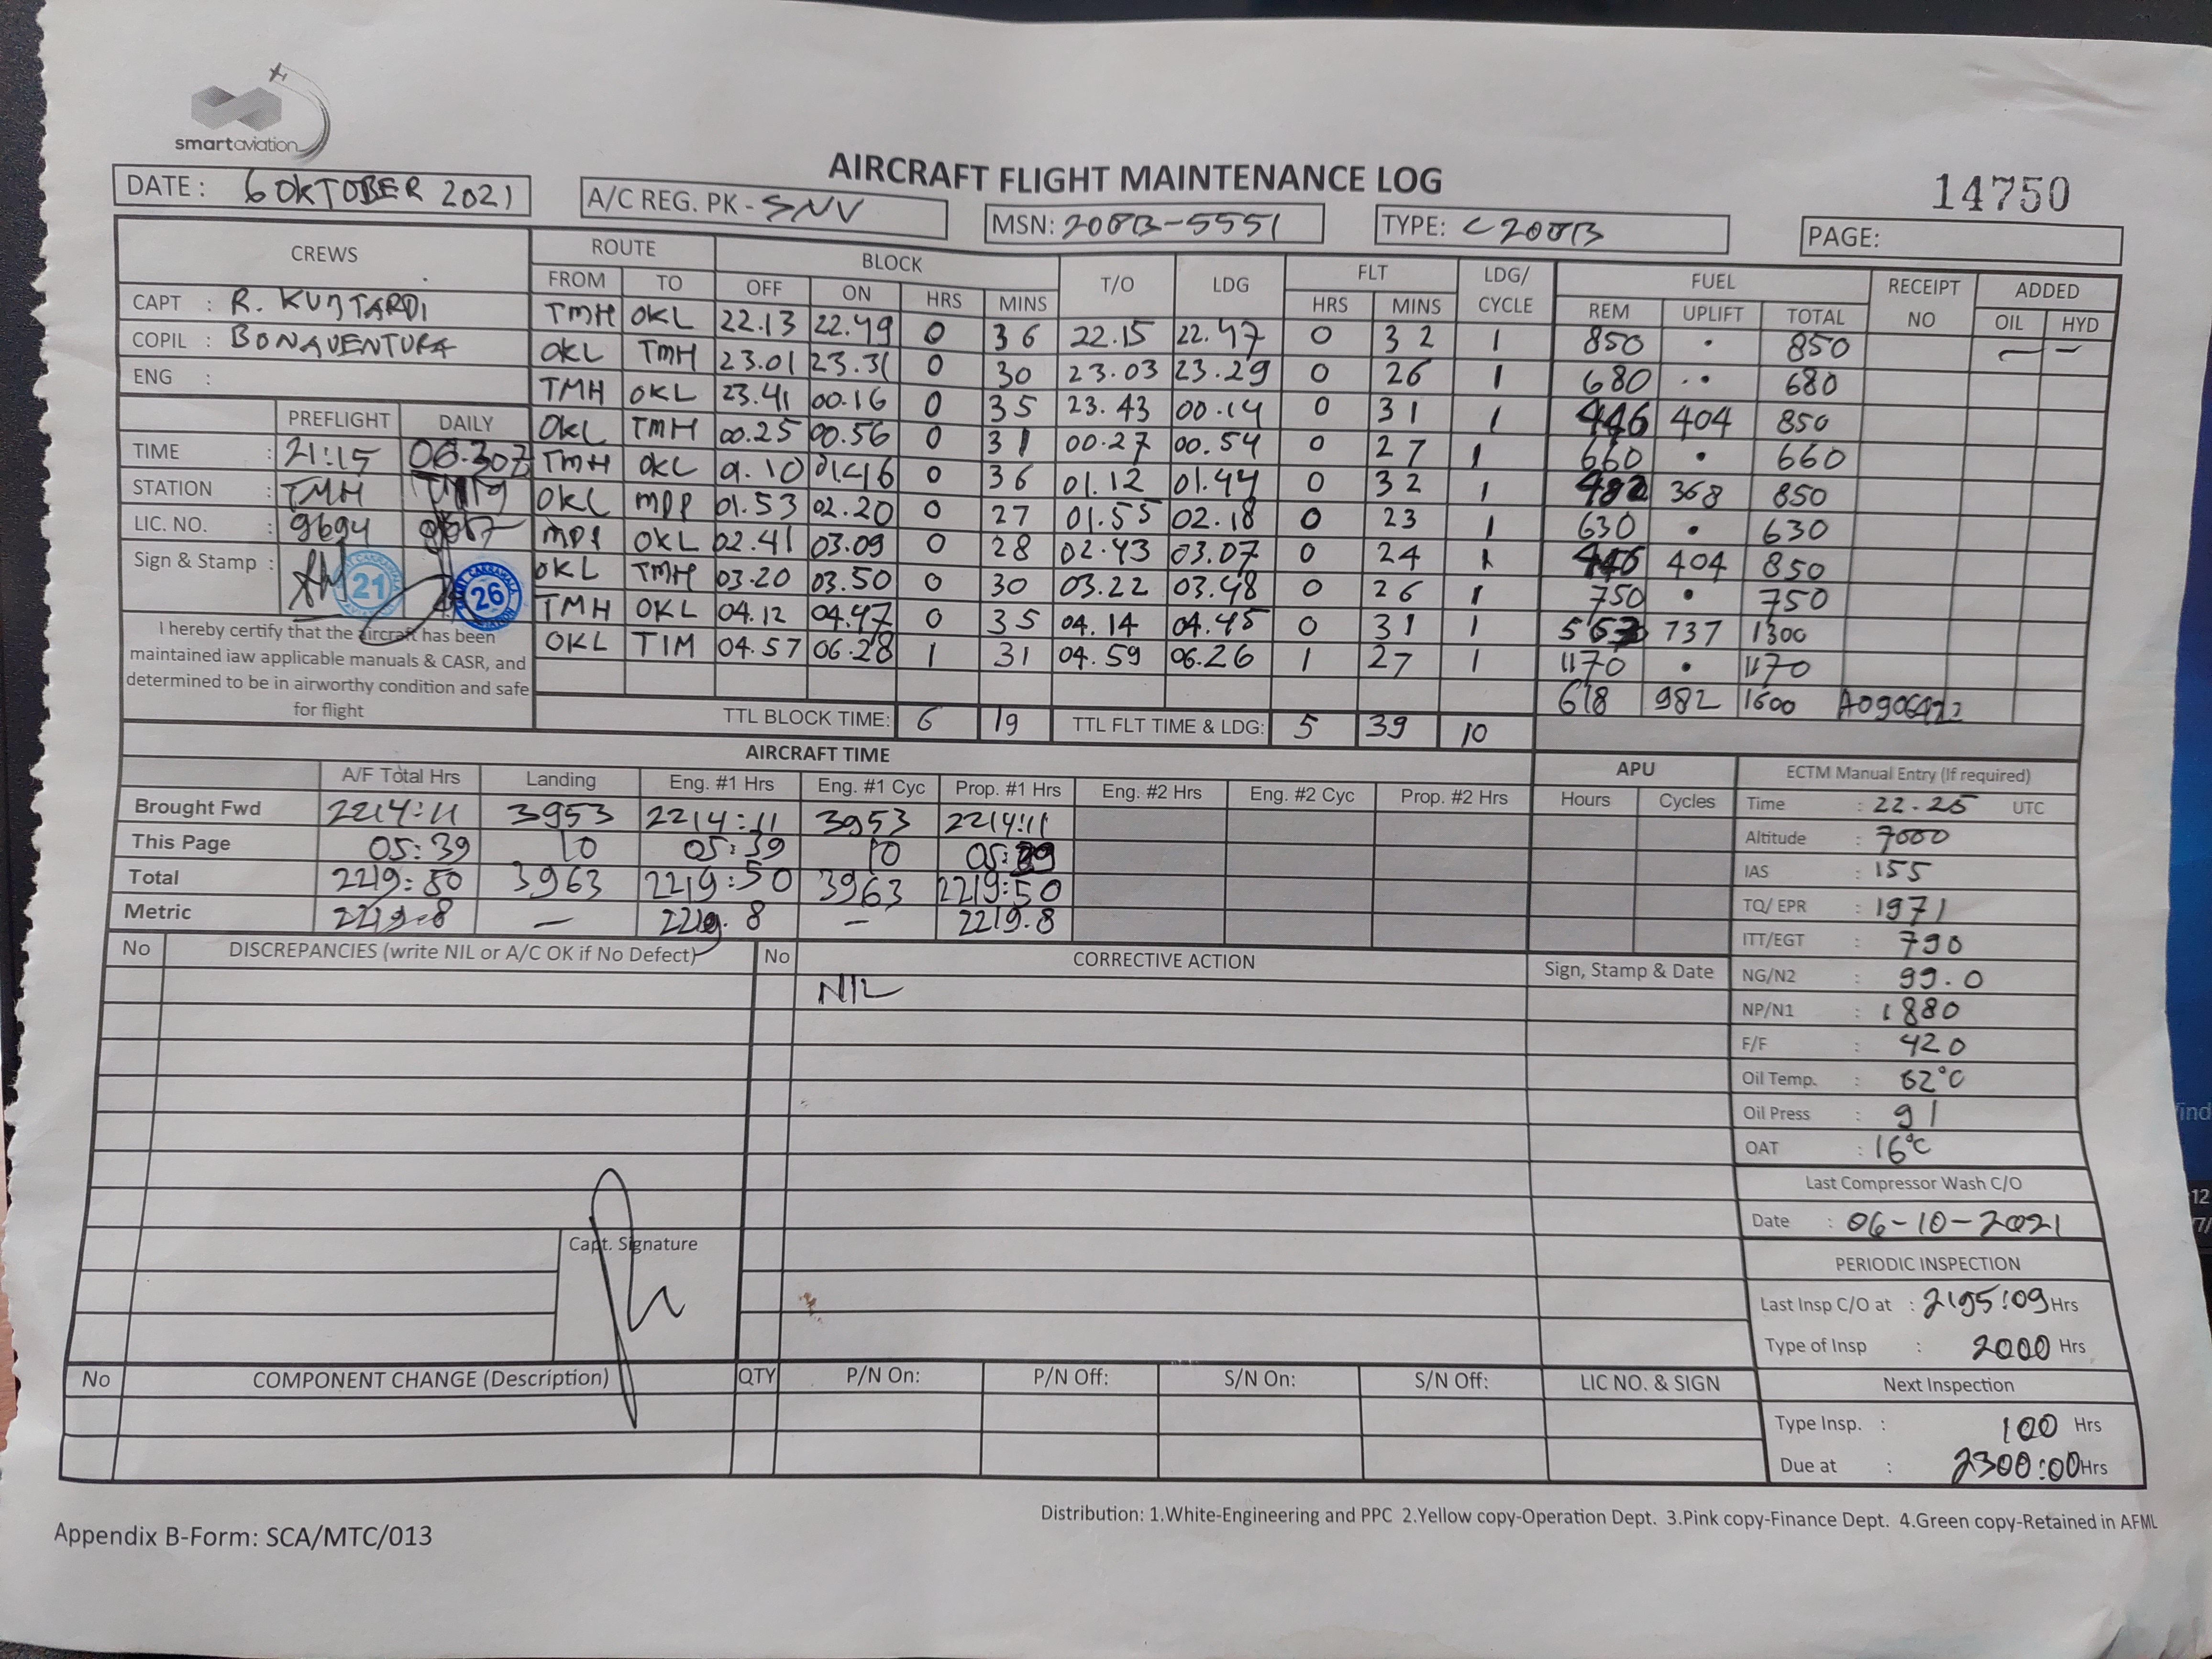 smartaviation
AIRCRAFT FLIGHT MAINTENANCE LOG
14750
DATE: 6 OKTOBER 2021
A/C REG. PK - SNV
MSN: 208B-5551
TYPE: C208B
PAGE:
CREWS ROUTE BLOCK T/O LDG FLT LDG/CYCLE FUEL RECEIPT NO ADDED
FROM TO OFF ON HRS MINS HRS MINS REM UPLIFT TOTAL OIL HYD
CAPT :
COPIL : BONAVENTURA
ENG :
TMH OKL 22.13 22.49 0 36 22.15 22.47 0 32 1 850 . 850 — —
OKL TMH 23.01 23.31 0 30 23.03 23.29 0 26 1 680 .. 680
TMH OKL 23.41 00.16 0 35 23.43 00.14 0 31 1 446 404 850
OKL TMH 00.25 00.56 0 31 00.27 00.54 0 27 1 660 . 660
TMH OKL 01.10 0 36 01.12 01.44 0 32 1 482 368 850
OKL 01.53 02.20 0 27 01.55 02.18 0 23 1 630 . 630
OKL 02.41 03.09 0 28 02.43 03.07 0 24 1 446 404 850
OKL TMH 03.20 03.50 0 30 03.22 03.48 0 26 1 750 . 750
TMH OKL 04.12 04.47 0 35 04.14 04.45 0 31 1 563 737 1300
OKL TIM 04.57 06.28 1 31 04.59 06.26 1 27 1 1170 . 1170
618 982 1600
PREFLIGHT DAILY
TIME : 21:15 06.30Z
STATION : TMH
LIC. NO. : 9694
Sign & Stamp :
21
26
I hereby certify that the aircraft has been
maintained iaw applicable manuals & CASR, and
determined to be in airworthy condition and safe
for flight
TTL BLOCK TIME: 6 19 TTL FLT TIME & LDG: 5 39 10
AIRCRAFT TIME
A/F Total Hrs Landing Eng. #1 Hrs Eng. #1 Cyc Prop. #1 Hrs Eng. #2 Hrs Eng. #2 Cyc Prop. #2 Hrs
Brought Fwd 2214:11 3953 2214:11 3953 2214:11
This Page 05:39 10 05:39 10 05:39
Total 2219:50 3963 2219:50 3963 2219:50
Metric 2219.8 — 2219.8 — 2219.8
APU
Hours Cycles
ECTM Manual Entry (If required)
Time : 22.25 UTC
Altitude : 7000
IAS : 155
TQ/ EPR : 1971
ITT/EGT : 790
NG/N2 : 99.0
NP/N1 : 1880
F/F : 420
Oil Temp. : 62°C
Oil Press : 91
OAT : 16°C
Last Compressor Wash C/O
Date : 06-10-2021
PERIODIC INSPECTION
Last Insp C/O at : 2195:09 Hrs
Type of Insp : 2000 Hrs
Next Inspection
Type Insp. : 100 Hrs
Due at : 2300:00 Hrs
No DISCREPANCIES (write NIL or A/C OK if No Defect) No CORRECTIVE ACTION Sign, Stamp & Date
NIL
Capt. Signature
No COMPONENT CHANGE (Description) QTY P/N On: P/N Off: S/N On: S/N Off: LIC NO. & SIGN
Distribution: 1.White-Engineering and PPC 2.Yellow copy-Operation Dept. 3.Pink copy-Finance Dept. 4.Green copy-Retained in AFML
Appendix B-Form: SCA/MTC/013